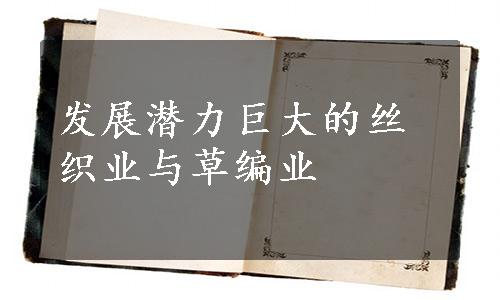 发展潜力巨大的丝
织业与草编业